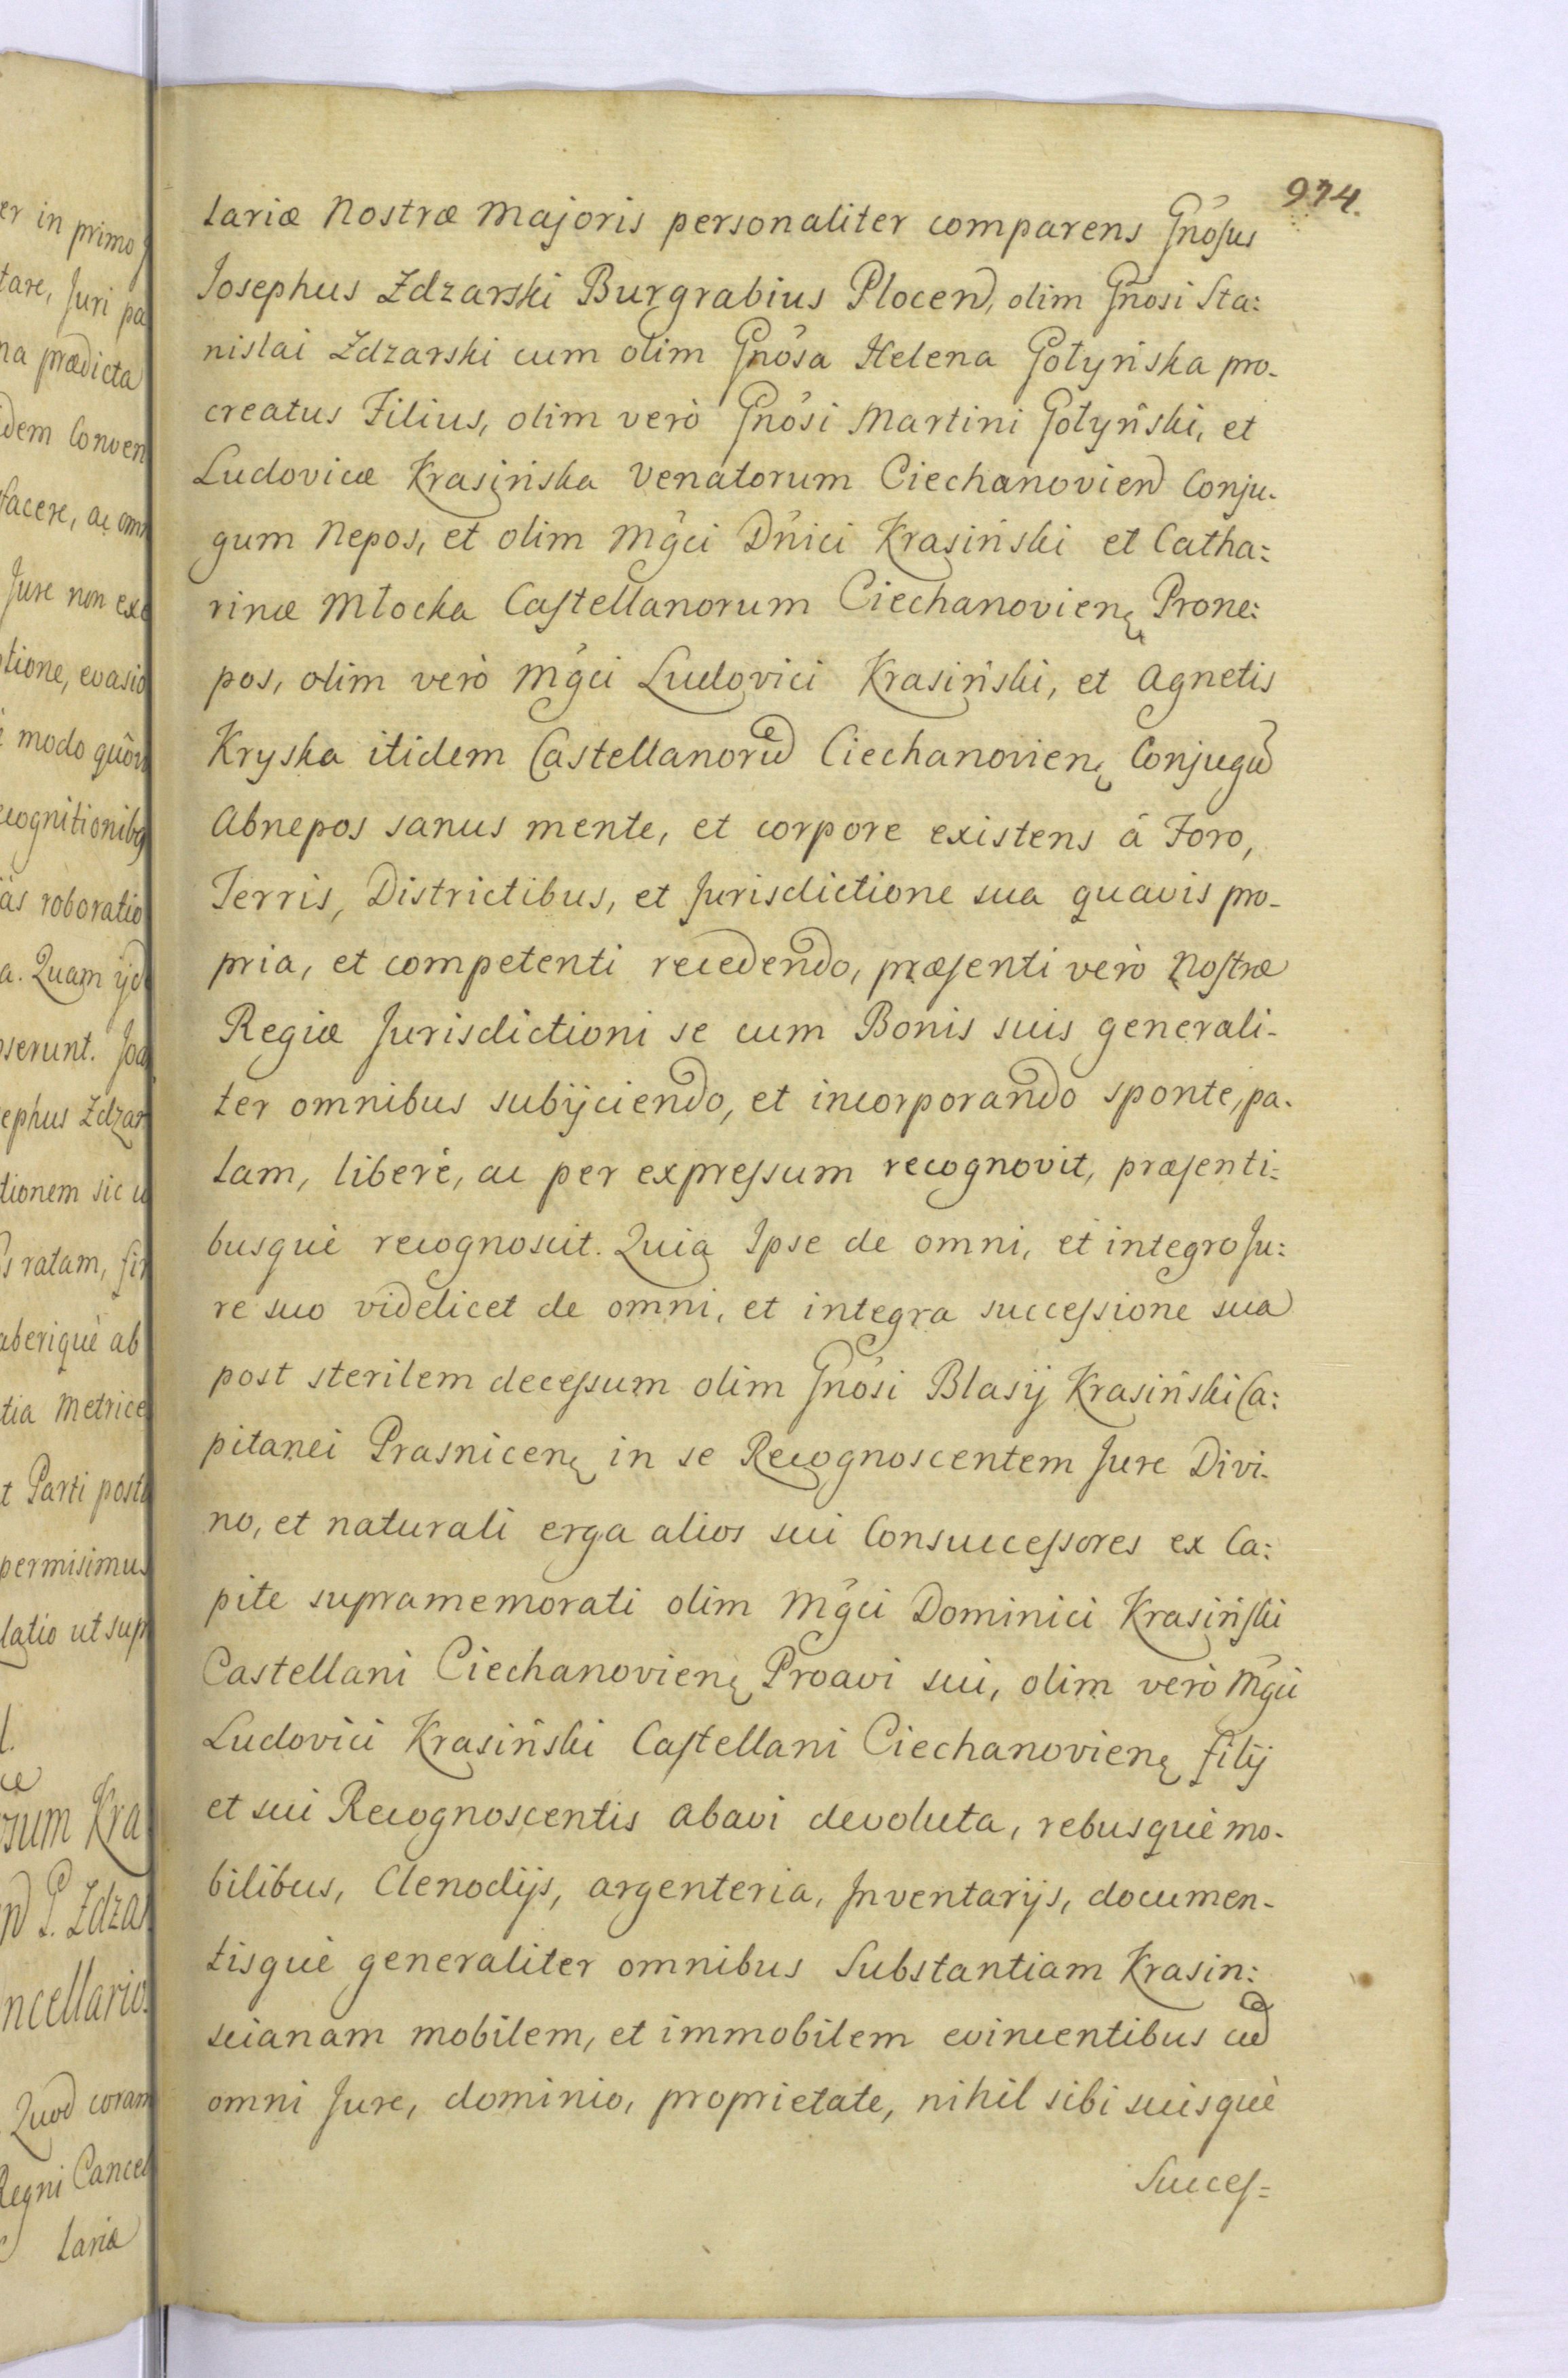 974.
lariæ Nostræ Majoris personaliter comparens Gnosus
Josephus Zdzarski Burgrabius Plocen, olim Gnosi Sta:
nislai Zdzarski cum olim Gnosa Helena Gołyńska pro-
creatus Filius, olim verò Gnosi Martini Gołyński, et
Ludovicæ Krasińska Venatorum Ciechanovien Conju-
gum Nepos, et olim Mgci Dnici Krasiński et Catha:
rinæ Młocka Castellanorum Ciechanovien Prone:
pos, olim verò Mgci Ludovici Krasiński, et Agnetis
Kryska itidem Castellanorũ Ciechanovien Conjugũ
Abnepos sanus mente, et corpore existens á Foro,
Terris, Districtibus, et Jurisdictione sua quavis pro-
pria, et competenti recedendo, præsenti verò Nostræ
Regiæ Jurisdictioni se cum Bonis suis generali-
ter omnibus subijciendo, et incorporando sponte, pa-
lam, liberé, ac per expressum recognovit, præsenti-
busquè recognoscit. Quia Ipse de omni, et integro Ju:
re suo videlicet de omni, et integra successione sua
post sterilem decessum olim Gnosi Blasij Krasiński Ca:
pitanei Prasnicen in se Recognoscentem Jure Divi-
no, et naturali erga alios sui Consuccessores ex Ca:
pite supramemorati olim Mgci Dominici Krasiński
Castellani Ciechanovien Proavi sui, olim verò Mgci
Ludovici Krasiński Castellani Ciechanovien filij
et sui Recognoscentis abavi devoluta, rebusquè mo-
bilibus, Clenodijs, argenteria, Inventarijs, documen-
tisquè generaliter omnibus Substantiam Krasin:
scianam mobilem, et immobilem evincentibus cũ
omni Jure, dominio, proprietate, nihil sibi suisquè
Succes=